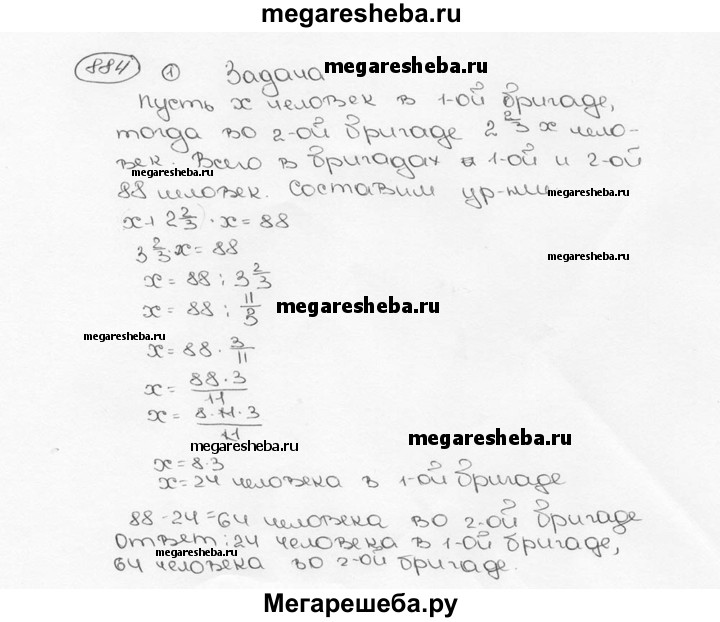 megaresheba.ru
884 1 Задача megaresheba.ru
Пусть x человек в 1-ой бригаде,
тогда во 2-ой бригаде 2 2/3 x чело-
век. Всего в бригадах 1-ой и 2-ой
megaresheba.ru
88 человек. Составим ур-ние megaresheba.ru
x + 2 2/3 · x = 88
3 2/3 · x = 88
megaresheba.ru
x = 88 : 3 2/3
x = 88 : 11/3 megaresheba.ru
megaresheba.ru
x = 88 · 3/11
x = 88·3/11
x = 8·11·3/11
megaresheba.ru megaresheba.ru
x = 8·3
x = 24 человека в 1-ой бригаде
88-24=64 человека во 2-ой бригаде
Ответ: 24 человека в 1-ой бригаде,
megaresheba.ru megaresheba.ru
64 человека во 2-ой бригаде.
Мегарешеба.ру